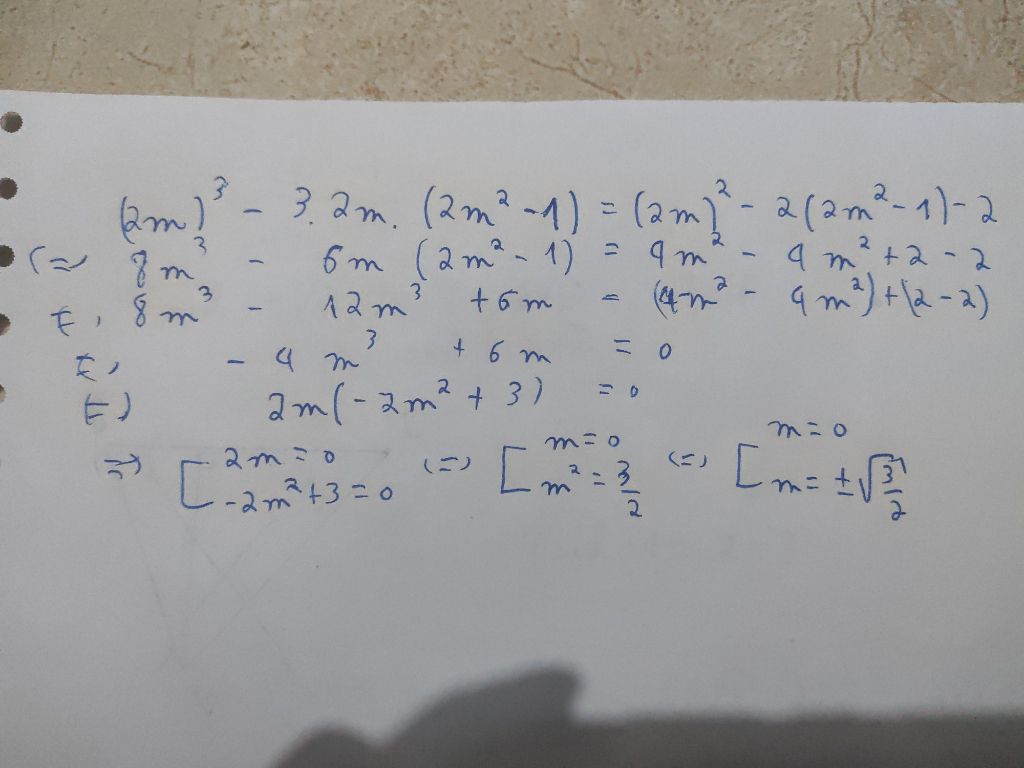 (2m)³ - 3. 2m. (2m² - 1) = (2m)² - 2(2m² - 1) - 2
(=) 8m³ - 6m (2m² - 1) = 4m² - 4m² + 2 - 2
(=) 8m³ - 12m³ + 6m = (4m² - 4m²) + (2 - 2)
(=) - 4m³ + 6m = 0
(=) 2m(-2m² + 3) = 0
=> [ 2m = 0 (=) [ m = 0 (=) [ m = 0
-2m² + 3 = 0 m² = 3/2 m = ±√(3/2)